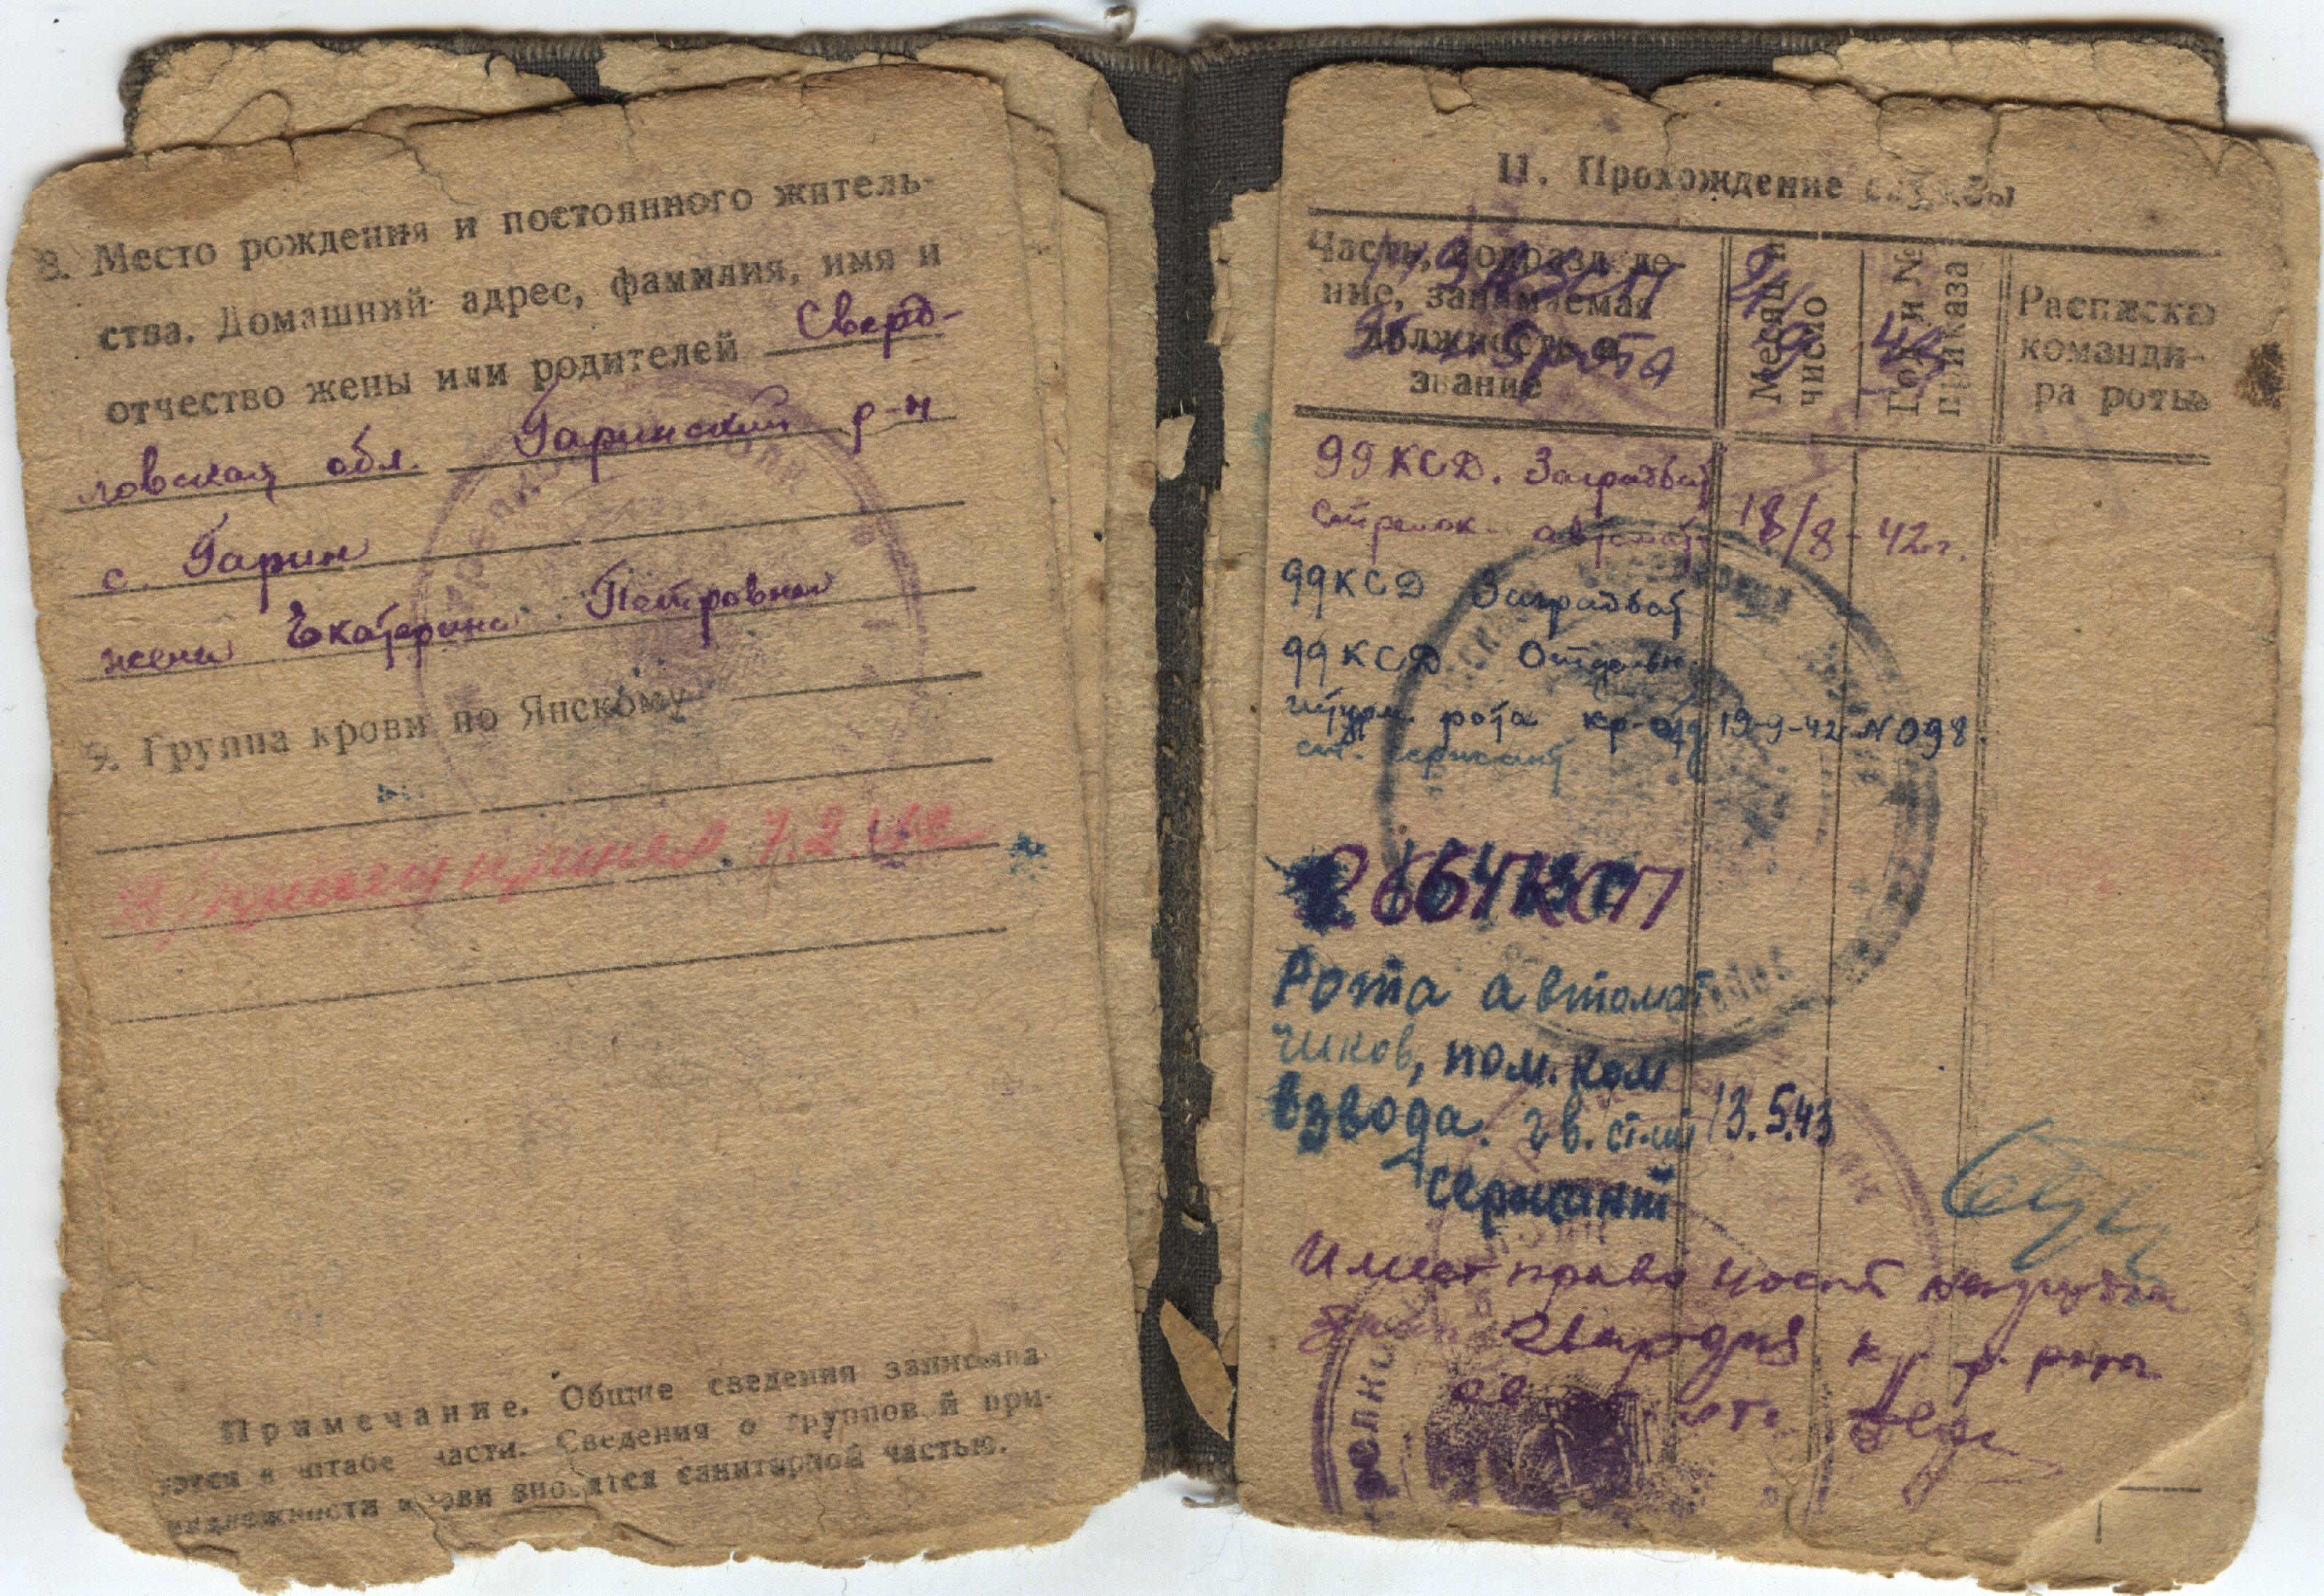 8. Место рождения и постоянного житель-
ства. Домашний адрес, фамилия, имя и
отчество жены или родителей Сверд-
ловская обл. Гаринский р-н
с. Гарин
жена Екатерина Петровна
9. Группа крови по Янскому
В/присягу принял 7.2.42
Примечание. Общие сведения записыва
ются в штабе части. Сведения о групповой при-
надлежности крови вносятся санитарной частью.
II. Прохождение службы
Часть, подразделе-
ние, занимаемая
должность и
звание
Месяц и
число
Год и №
приказа
Расписка
команди-
ра роты
рота
99 КСД. Заградбат
стрелок автомат. 18/8-42 г.
99 КСД Заградбат
99 КСД Отдельн.
штурм. рота 19-9-42 N 098.
ст. сержант
Рота автомат
чиков, пом. ком
взвода. гв. ст-ий 13.5.43
сержант
Имеет право носить нагрудн
Гвардия к-р роты